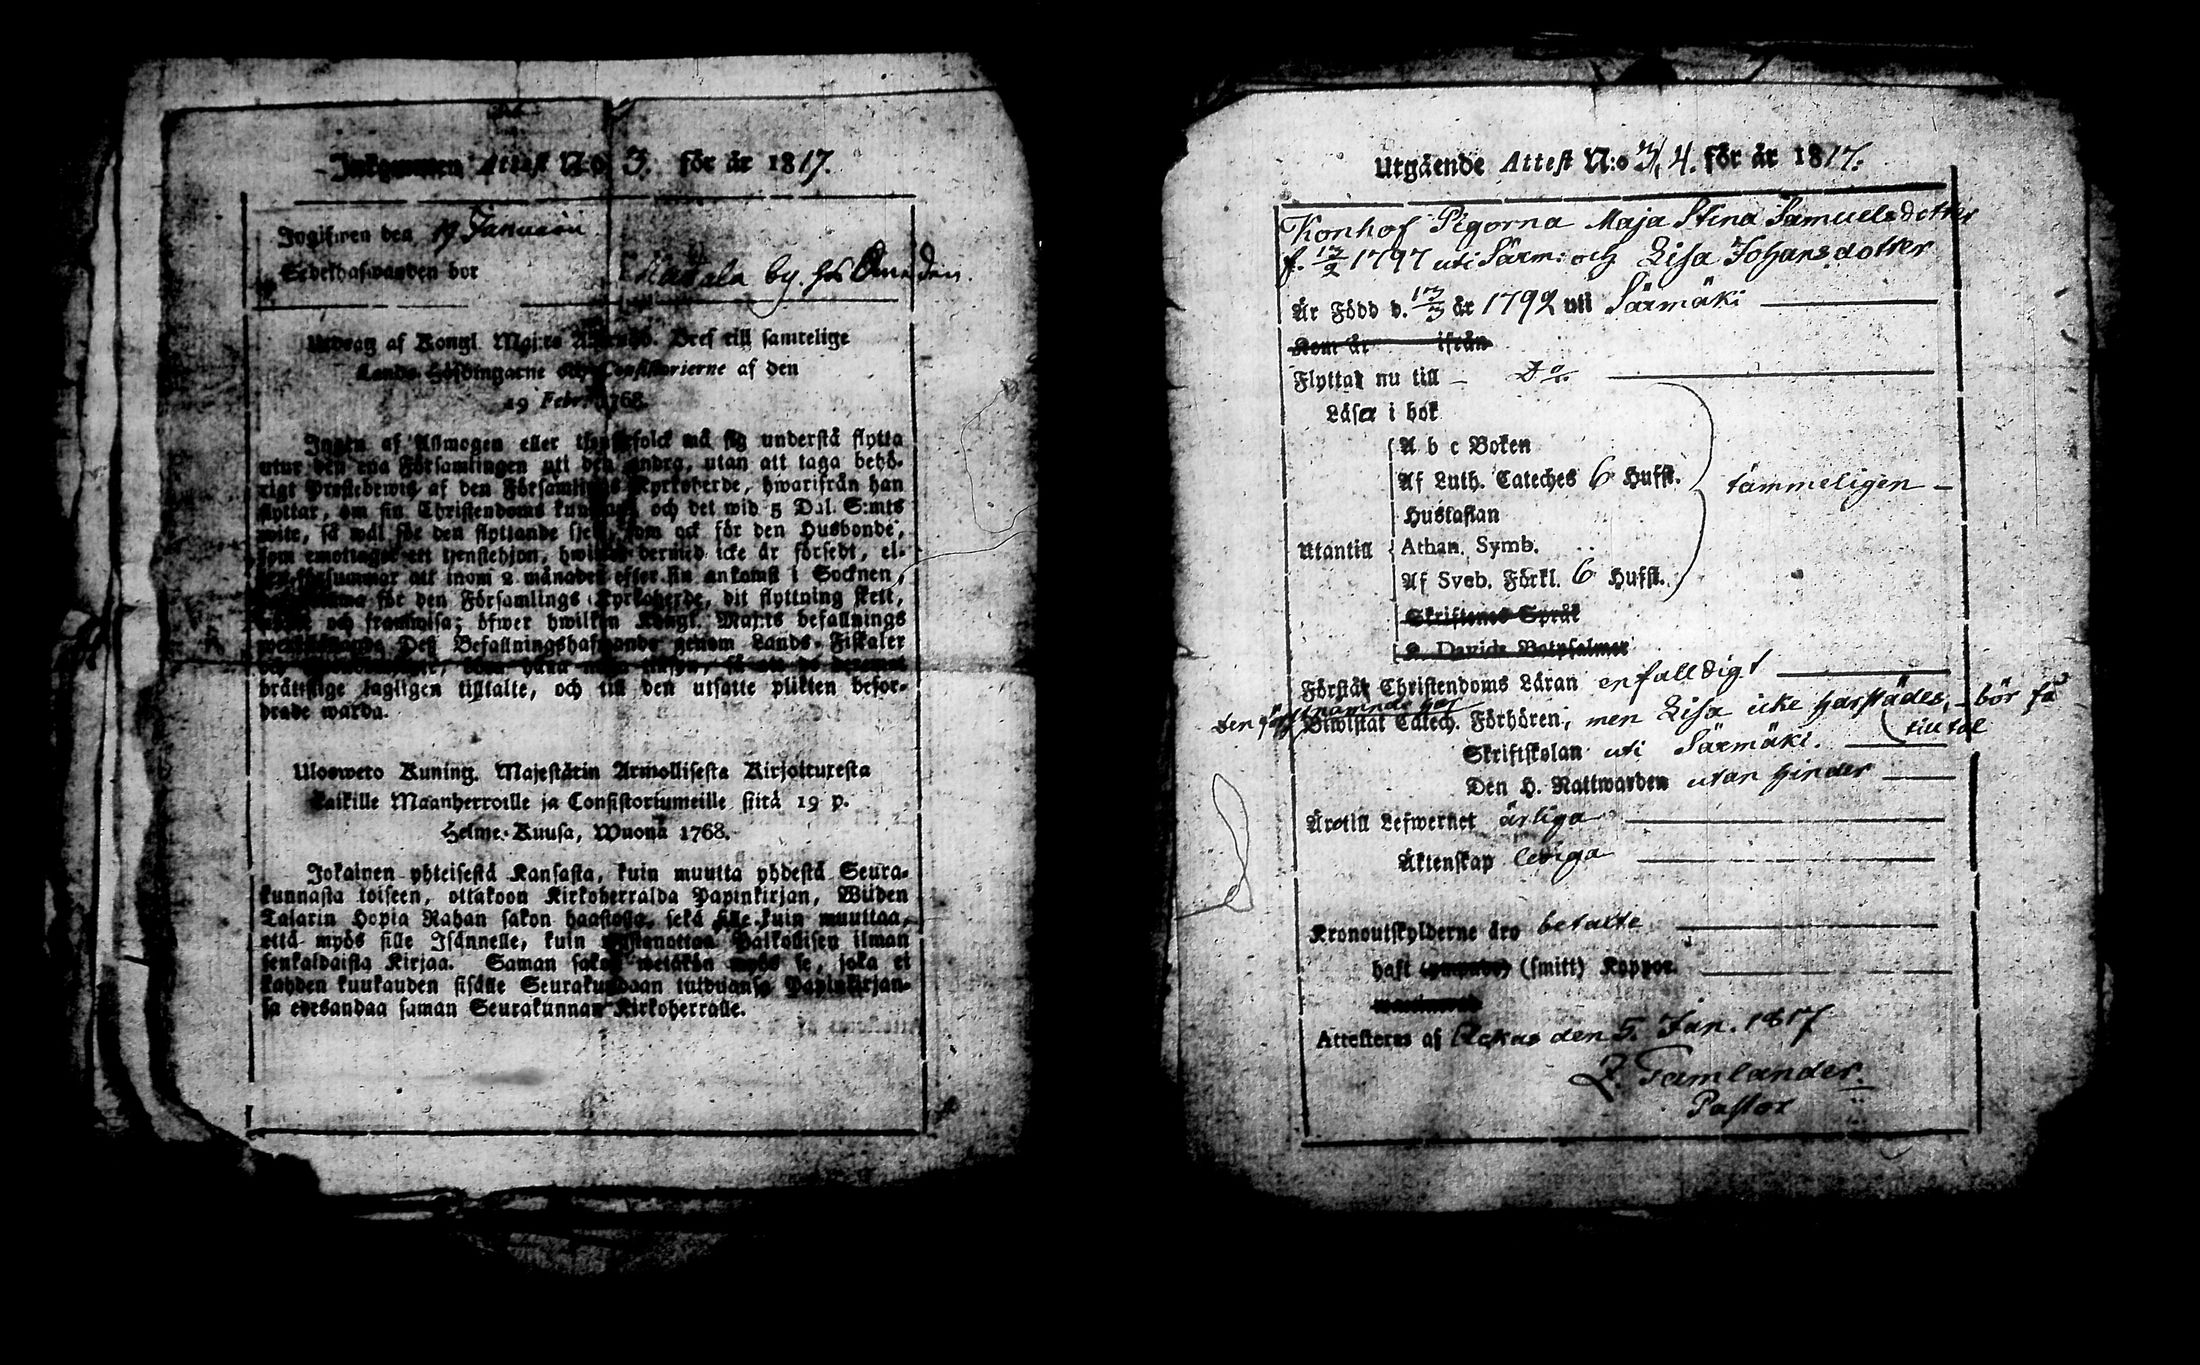 Inkommen Attest N:o 3. för år 1817.
Ingifwen den 19 Januarii
Sedelhafwanden bor by. hos
Utdrag af Kongl. Maj:ts Bref till samtelige
Lands-Höfdingarne och Consistorierne af den
19 Febr. 1768.
Ingen af Allmogen eller tjenstefolck må sig understå flytta
utur den ena Församlingen uti den andra, utan att taga behö-
rigt Prestebewis af den Församlings Kyrkoherde, hwarifrån han
flyttar, om sin Christendoms kunskap, och det wid 5 Dal. S:mts
wite, så wäl för den flyttande sjelf, som ock för den Husbonde,
som emottager ett tjenstehjon, hwilket dermed icke är försedt, el-
ler försummar att inom 2 månader efter sin ankomst i Socknen,
för den Församlings Kyrkoherde, dit flyttning skett,
och framwisa; öfwer hwilken Kongl. Maj:ts befallnings
Deß Befallningshafwande genom Lands-Fiskaler
bräktelige lagligen tilltalte, och till den utsatte plikten befor-
drade warda.
Uloswero Kuning. Majestätin Armollisesta Kirjoituxesta
kaikille Maanherroille ja Consistoriumeille siitä 19 p.
Helme-Kuusa, Wuonna 1768.
Jokainen yhteisestä Kansasta, kuin muutta yhdestä Seura-
kunnasta toiseen, ottakoon Kirkoherralda Papinkirjan, Wiiden
Talarin Hopia Rahan sakon haastolla, sekä sille kuin muuttaa,
että myös sille Isännelle, kuin wastanottaa Palkollisen ilman
senkaldaista Kirjaa. Saman sakon wetäkön myös se, joka ei
kahden kuukauden sisälle Seurakundaan tulduansa Papinkirjan-
sa edesandaa saman Seurakunnan Kirkoherralle.
Utgående Attest N:o 3, 4. för år 1817.
Konhof Pigorna Maja Stina Samuelsdotter
f. 12/2 1797 uti Särm: och Lisa Johansdotter
Är Född d. 13/3 år 1792 uti Särmäki
Kom år ifrån
Flyttar nu till Do.
Läser i bok
A b c Boken
Af Luth. Cateches 6 Hufst. tämmeligen
Hustaflan
Utantill Athan. Symb.
Af Sveb. Förkl. 6 Hufst.
Skriftenes Språk
K. Davids Botpsalmer
Förstår Christendoms Läran enfalldigt
den förstnämnde har
Biwistat Catech. Förhören, men Lisa icke härstädes, bör få
tilltal
Skriftskolan uti Särmäki.
Den H. Nattwarden utan hinder
Äro till Lefwernet ärliga
Äktenskap lediga
Kronoutskylderne äro betalte
haft (smitt) Koppor.
Attesteras af den 5. Jan. 1817
Z. Tamlander.
Pastor